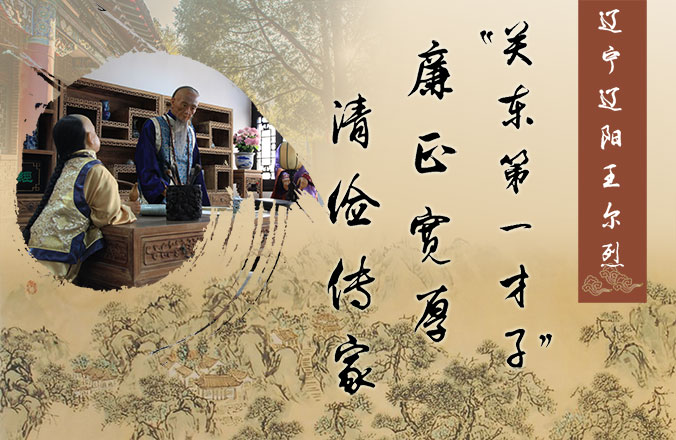 辽宁辽阳王尔烈
“关东第一才子”
廉正宽厚
清俭传家